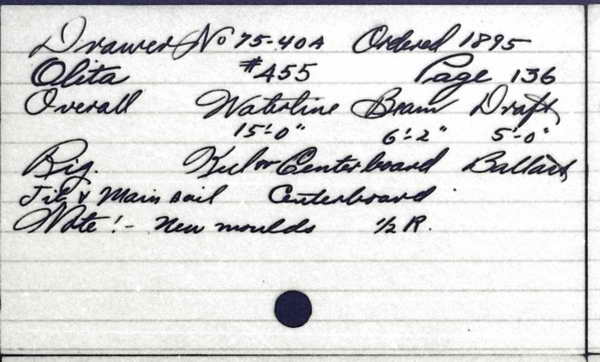 Drawer No 75-40A Ordered 1895
Olita #455 Page 136
Overall Waterline Beam Draft
15'-0" 6'-2" 5'-0"
Rig. Keel or Centerboard Ballast
Jib & Main sail Centerboard.
Note!- New moulds 1/2 R.